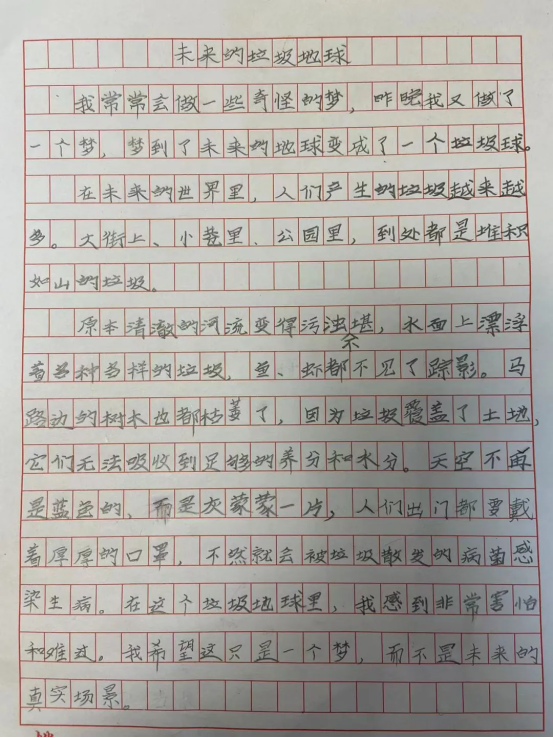 未来的垃圾地球
我常常会做一些奇怪的梦，昨晚我又做了
一个梦，梦到了未来的地球变成了一个垃圾球。
在未来的世界里，人们产生的垃圾越来越
多。大街上、小巷里、公园里，到处都是堆积
如山的垃圾。
原本清澈的河流变得污浊不堪，水面上漂浮
着各种各样的垃圾，鱼、虾都不见了踪影。马
路边的树木也都枯萎了，因为垃圾覆盖了土地，
它们无法吸收到足够的养分和水分。天空不再
是蓝色的，而是灰蒙蒙一片，人们出门都要戴
着厚厚的口罩，不然就会被垃圾散发的病菌感
染生病。在这个垃圾地球里，我感到非常害怕
和难过。我希望这只是一个梦，而不是未来的
真实场景。